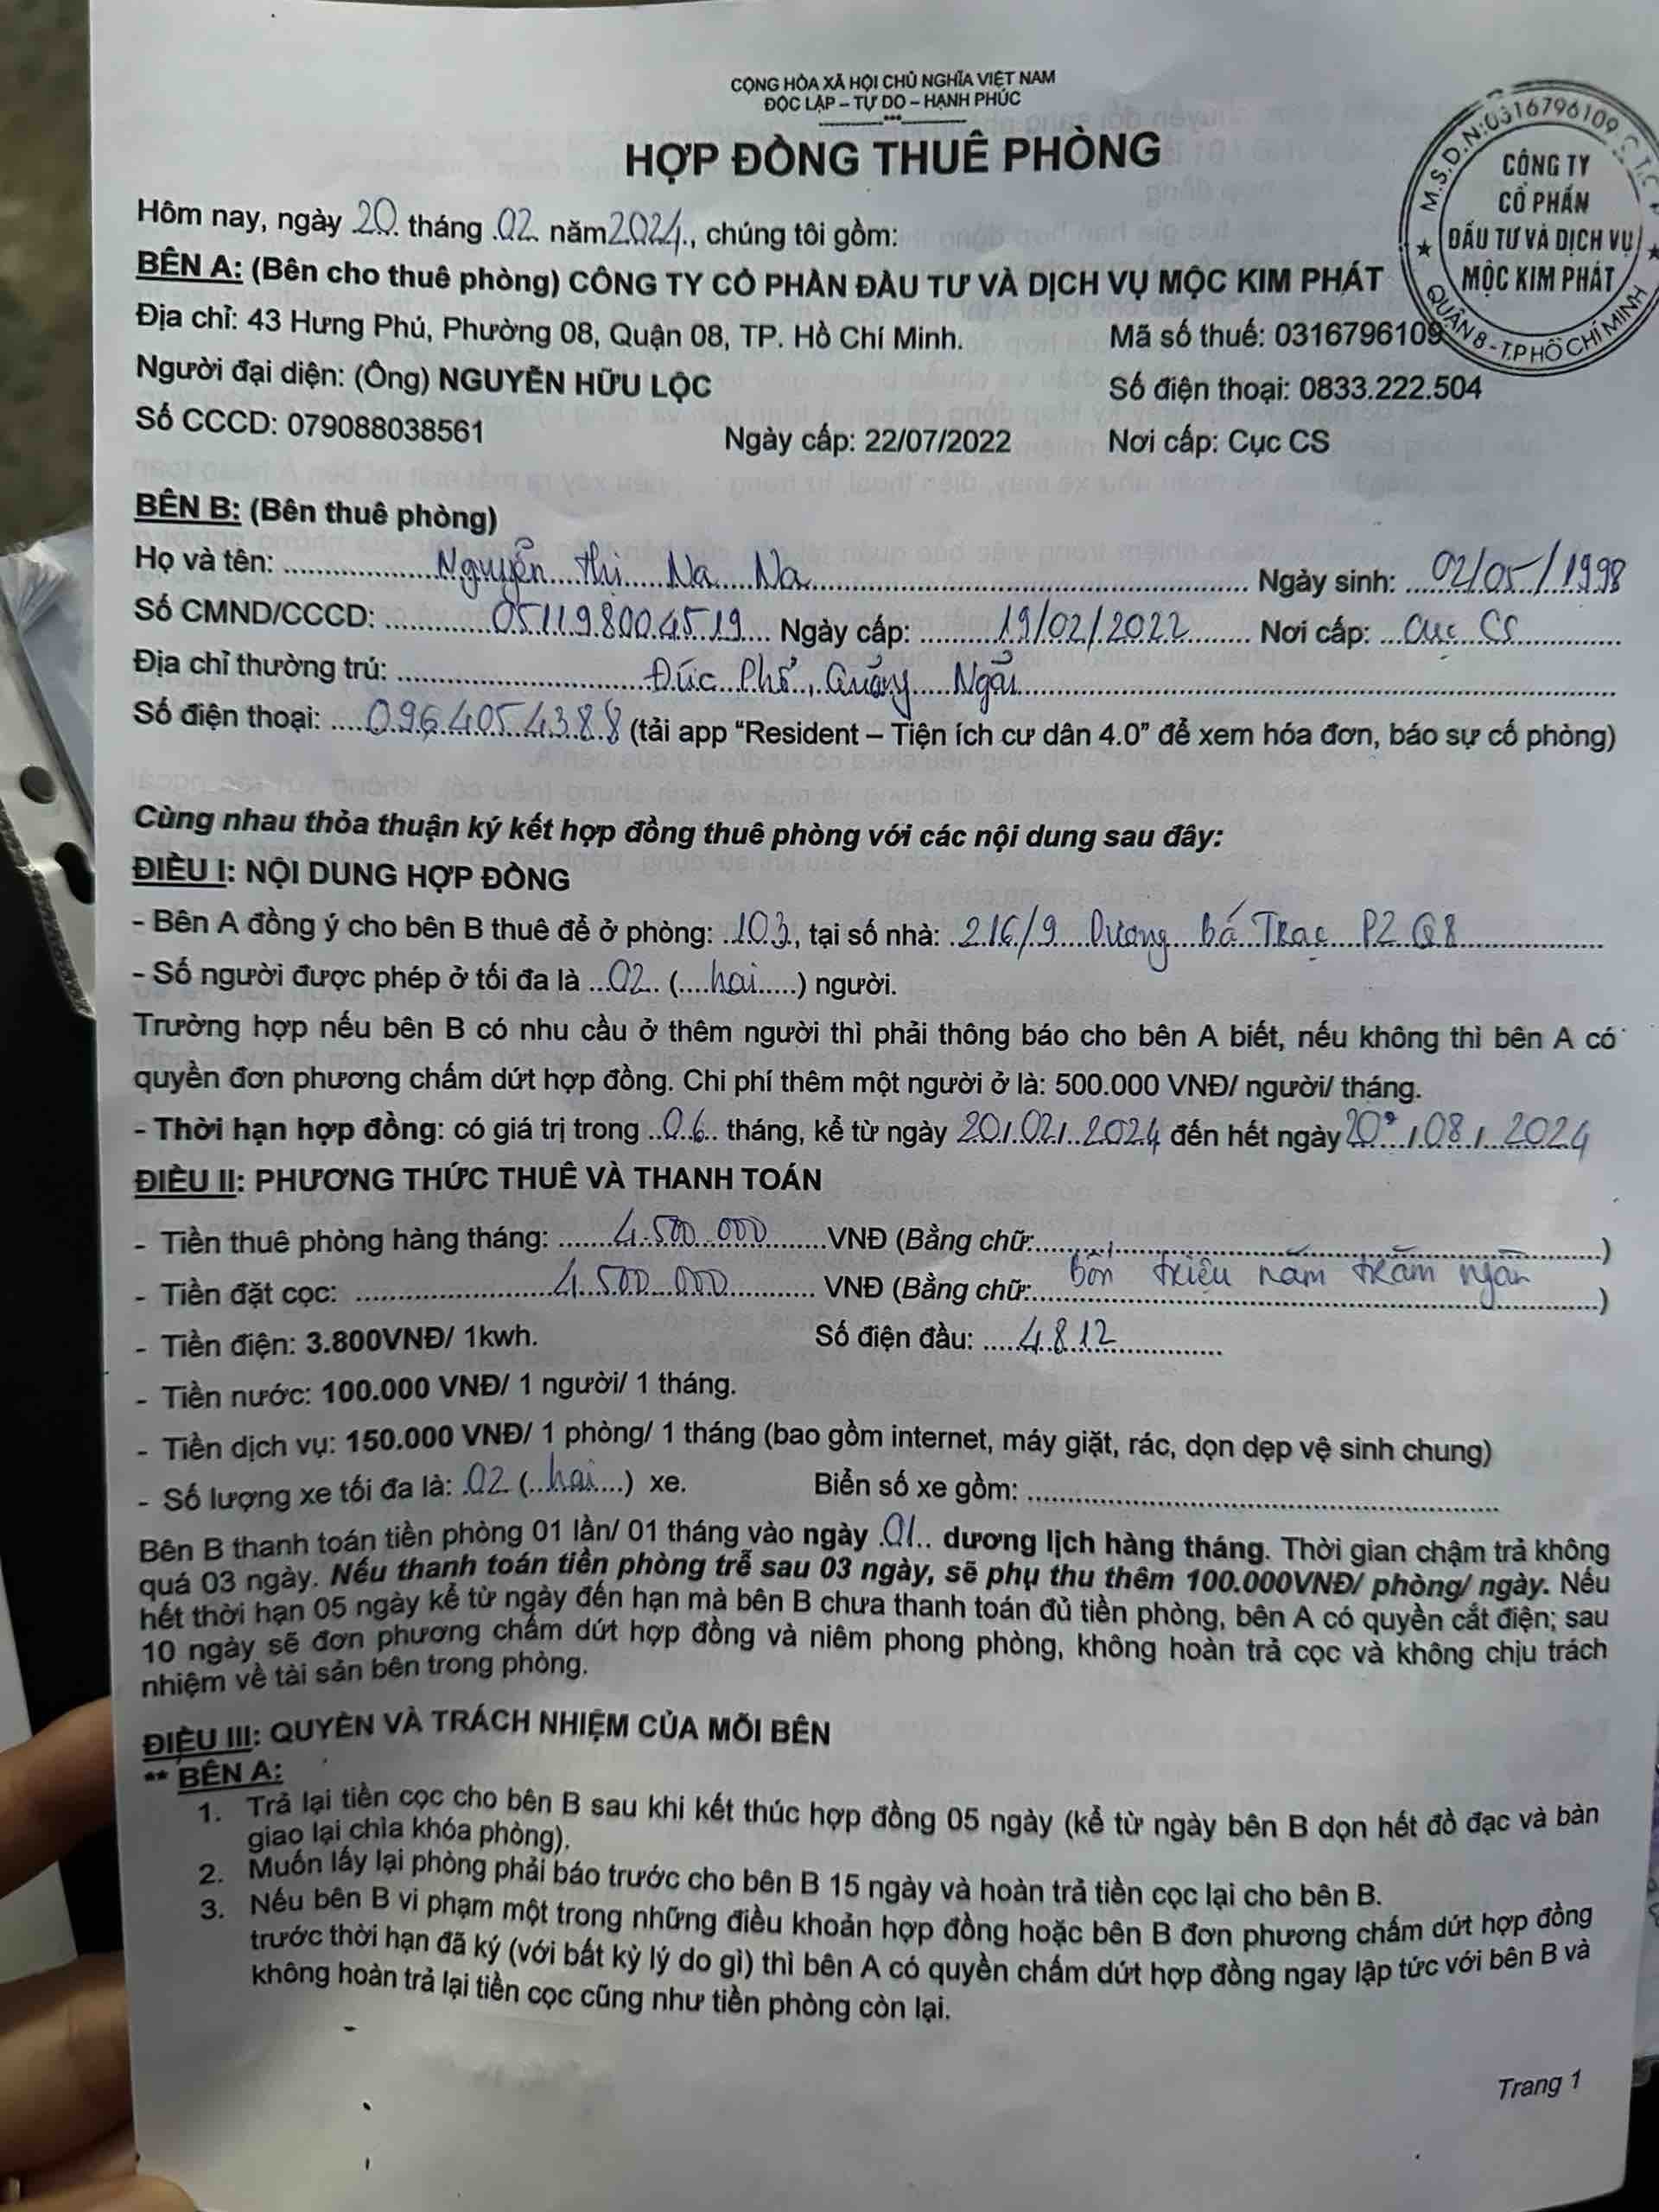 CỘNG HÒA XÃ HỘI CHỦ NGHĨA VIỆT NAM
ĐỘC LẬP – TỰ DO – HẠNH PHÚC
HỢP ĐỒNG THUÊ PHÒNG
M.S.D.N:0316796109
CÔNG TY
CỔ PHẦN
ĐẦU TƯ VÀ DỊCH VỤ
MỘC KIM PHÁT
QUẬN 8 - T.P HỒ CHÍ MINH
Hôm nay, ngày 20 tháng 02 năm 2024, chúng tôi gồm:
BÊN A: (Bên cho thuê phòng) CÔNG TY CỔ PHẦN ĐẦU TƯ VÀ DỊCH VỤ MỘC KIM PHÁT
Địa chỉ: 43 Hưng Phú, Phường 08, Quận 08, TP. Hồ Chí Minh. Mã số thuế: 0316796109
Người đại diện: (Ông) NGUYỄN HỮU LỘC Số điện thoại: 0833.222.504
Số CCCD: 079088038561 Ngày cấp: 22/07/2022 Nơi cấp: Cục CS
BÊN B: (Bên thuê phòng)
Họ và tên: Nguyễn Thị Na Na Ngày sinh: 02/05/1998
Số CMND/CCCD: 051198004519 Ngày cấp: 19/02/2022 Nơi cấp: Cục CS
Địa chỉ thường trú: Đức Phổ, Quảng Ngãi
Số điện thoại: 0964054388 (tải app “Resident – Tiện ích cư dân 4.0” để xem hóa đơn, báo sự cố phòng)
Cùng nhau thỏa thuận ký kết hợp đồng thuê phòng với các nội dung sau đây:
ĐIỀU I: NỘI DUNG HỢP ĐỒNG
- Bên A đồng ý cho bên B thuê để ở phòng: 103, tại số nhà: 216/9 Dương Bá Trạc P2 Q8
- Số người được phép ở tối đa là 02 (hai) người.
Trường hợp nếu bên B có nhu cầu ở thêm người thì phải thông báo cho bên A biết, nếu không thì bên A có
quyền đơn phương chấm dứt hợp đồng. Chi phí thêm một người ở là: 500.000 VNĐ/ người/ tháng.
- Thời hạn hợp đồng: có giá trị trong 06 tháng, kể từ ngày 20/02/2024 đến hết ngày 20/08/2024
ĐIỀU II: PHƯƠNG THỨC THUÊ VÀ THANH TOÁN
- Tiền thuê phòng hàng tháng: 4.500.000 VNĐ (Bằng chữ: )
- Tiền đặt cọc: 4.500.000 VNĐ (Bằng chữ: bốn triệu năm trăm ngàn )
- Tiền điện: 3.800VNĐ/ 1kwh. Số điện đầu: 4812
- Tiền nước: 100.000 VNĐ/ 1 người/ 1 tháng.
- Tiền dịch vụ: 150.000 VNĐ/ 1 phòng/ 1 tháng (bao gồm internet, máy giặt, rác, dọn dẹp vệ sinh chung)
- Số lượng xe tối đa là: 02 (hai) xe. Biển số xe gồm:
Bên B thanh toán tiền phòng 01 lần/ 01 tháng vào ngày 01 dương lịch hàng tháng. Thời gian chậm trả không
quá 03 ngày. Nếu thanh toán tiền phòng trễ sau 03 ngày, sẽ phụ thu thêm 100.000VNĐ/ phòng/ ngày. Nếu
hết thời hạn 05 ngày kể từ ngày đến hạn mà bên B chưa thanh toán đủ tiền phòng, bên A có quyền cắt điện; sau
10 ngày sẽ đơn phương chấm dứt hợp đồng và niêm phong phòng, không hoàn trả cọc và không chịu trách
nhiệm về tài sản bên trong phòng.
ĐIỀU III: QUYỀN VÀ TRÁCH NHIỆM CỦA MỖI BÊN
** BÊN A:
1. Trả lại tiền cọc cho bên B sau khi kết thúc hợp đồng 05 ngày (kể từ ngày bên B dọn hết đồ đạc và bàn
giao lại chìa khóa phòng).
2. Muốn lấy lại phòng phải báo trước cho bên B 15 ngày và hoàn trả tiền cọc lại cho bên B.
3. Nếu bên B vi phạm một trong những điều khoản hợp đồng hoặc bên B đơn phương chấm dứt hợp đồng
trước thời hạn đã ký (với bất kỳ lý do gì) thì bên A có quyền chấm dứt hợp đồng ngay lập tức với bên B và
không hoàn trả lại tiền cọc cũng như tiền phòng còn lại.
Trang 1